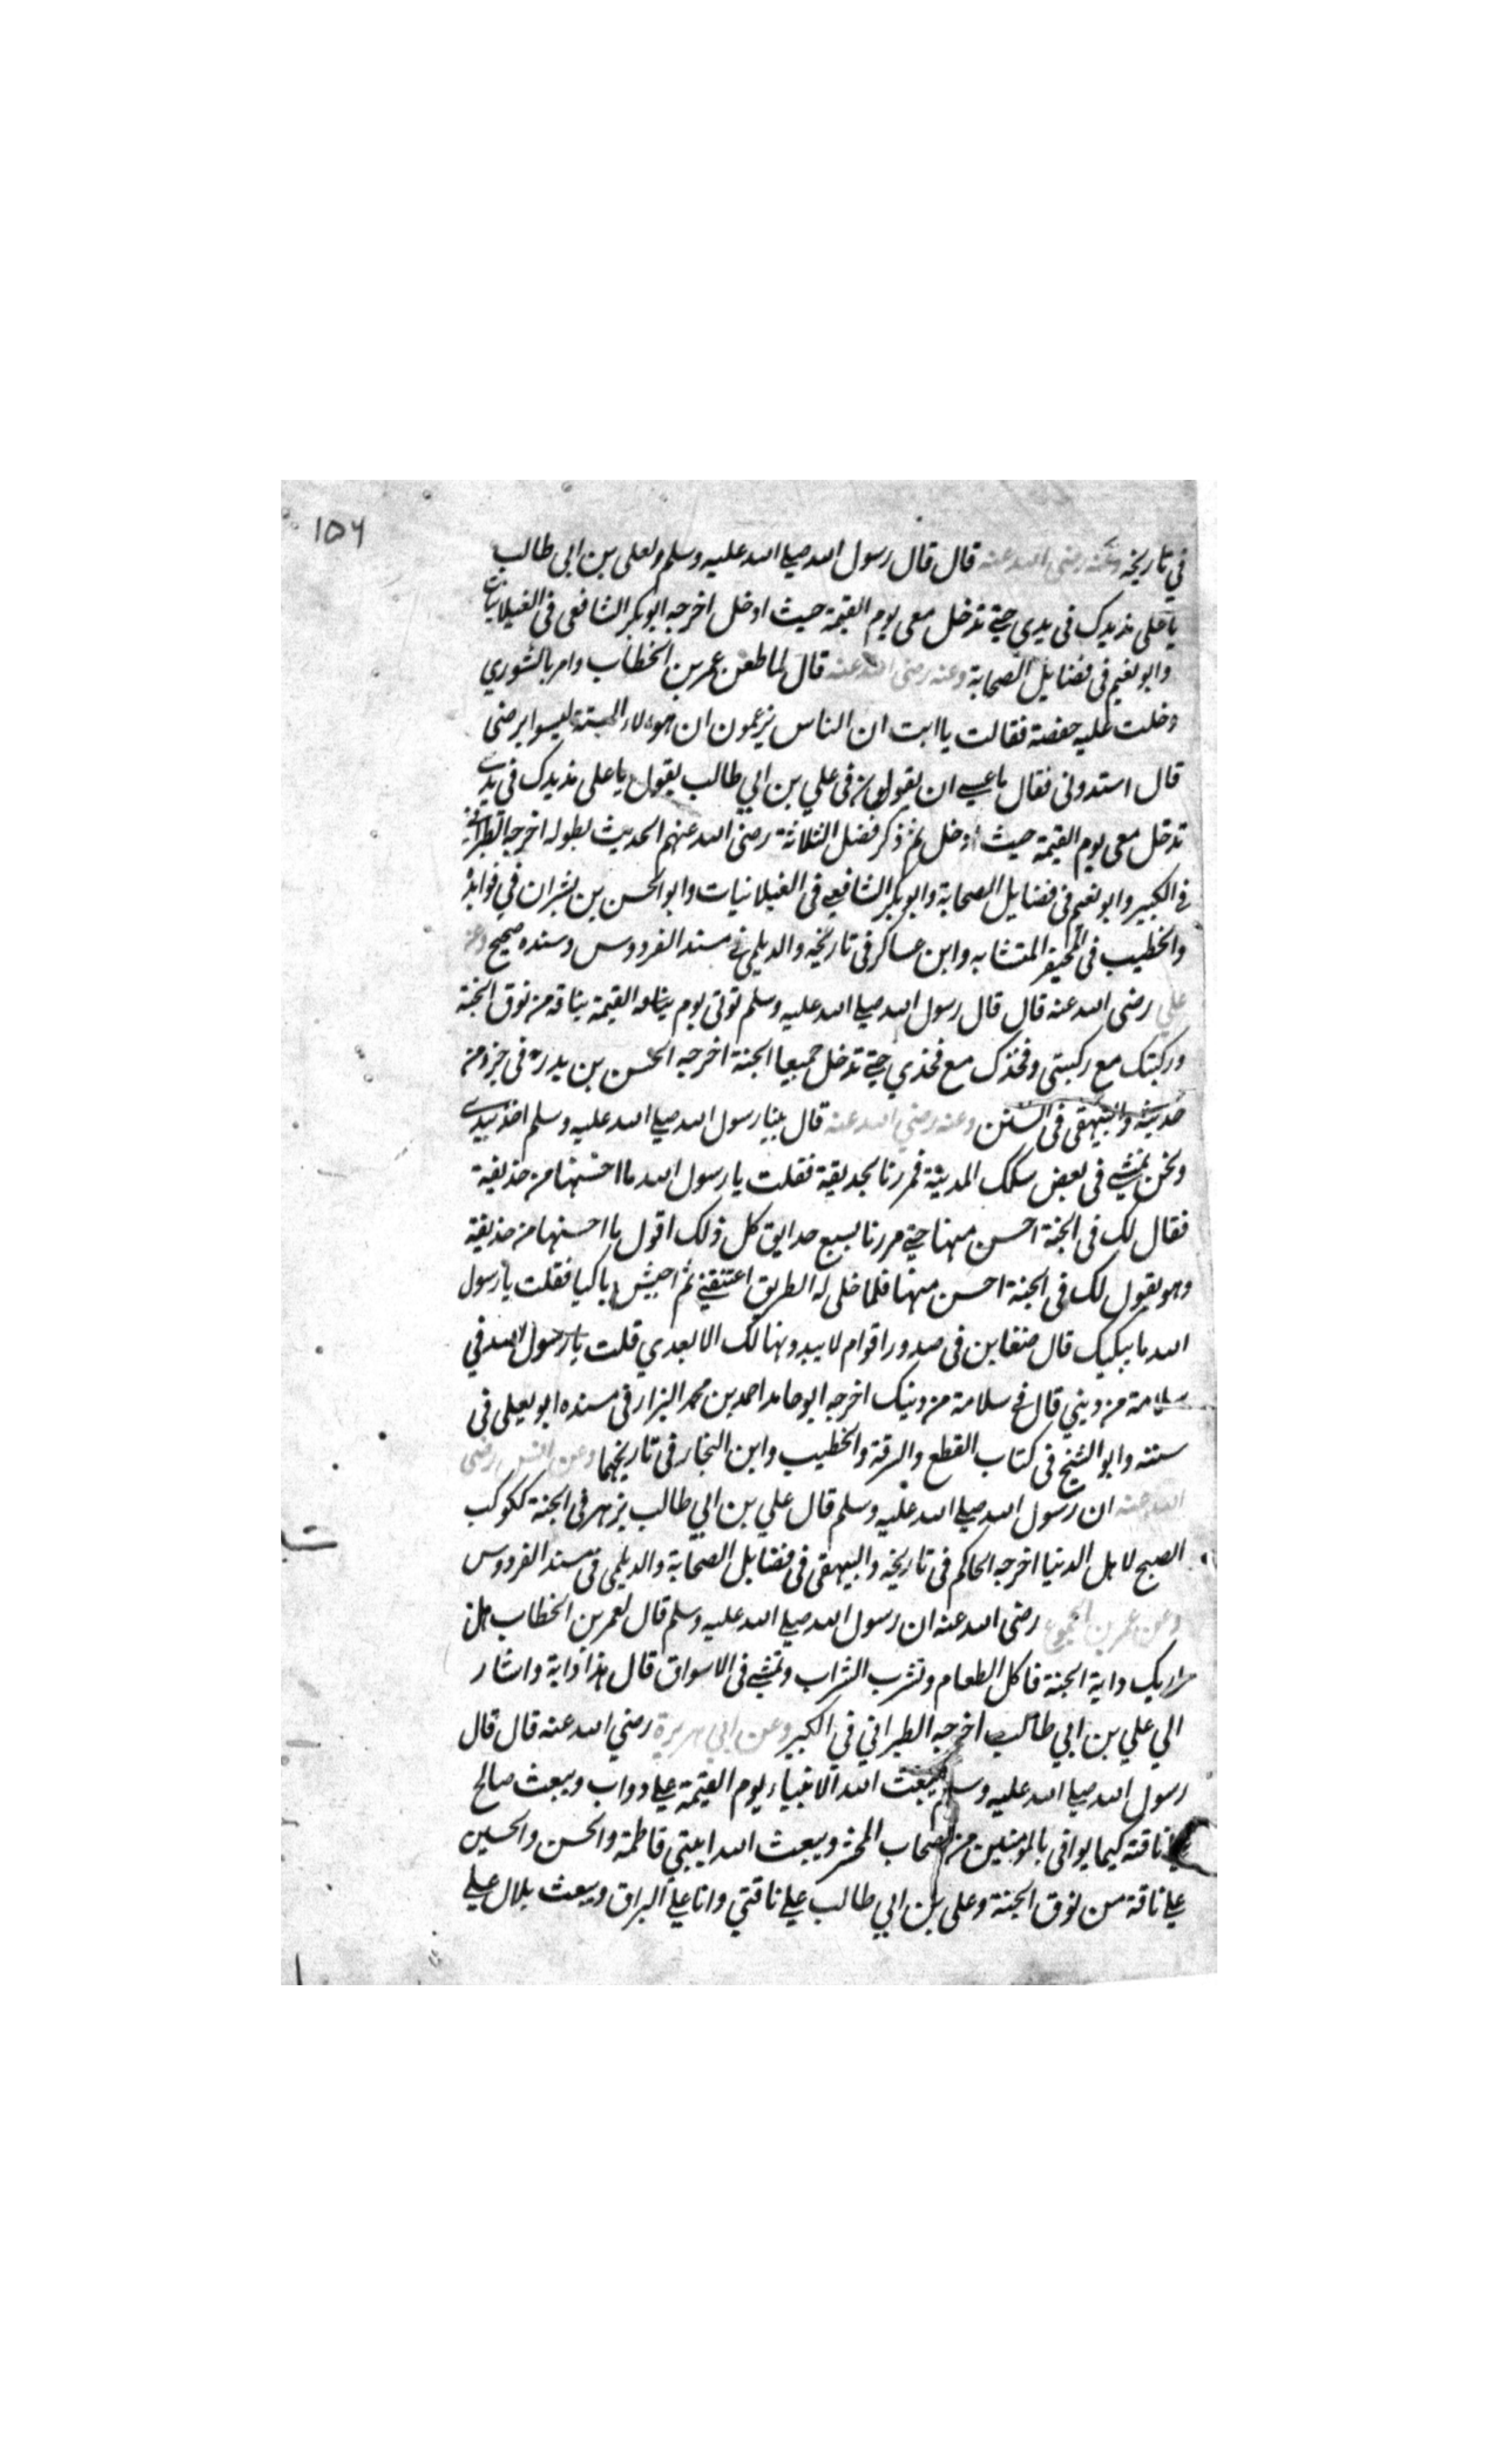 ١٥٦
في تاريخه وعنه رضي الله عنه قال قال رسول الله صلي الله عليه وسلم لعلي بن ابي طالب
يا علي مد يدك في يدي حتي تدخل معي يوم القيمة حيث ادخل اخرجه ابو بكر الشافعي في الغيلانيات
وابو نعيم في فضايل الصحابة وعنه رضي الله عنه قال لما طعن عمر بن الخطاب وامر بالشوري
دخلت عليه حفصة فقالت يا ابت ان الناس يزعمون ان هولاء الستة ليسوا برضي
قال اسندوني فقال ما عسي ان يقولوا في علي بن ابي طالب يقول يا علي مد يدك في يدي
تدخل معي يوم القيمة حيث ادخل ثم ذكر فضل الثلاثة رضي الله عنهم الحديث بطوله اخرجه الطبراني
في الكبير وابو نعيم في فضايل الصحابة وابو بكر الشافعي في الغيلانيات وابو الحسن بن بشران في فوايده
والخطيب في المتشابه وابن عساكر في تاريخه والديلمي في مسند الفردوس وسنده صحيح وعن
علي رضي الله عنه قال قال رسول الله صلي الله عليه وسلم توتي يوم القيمة بناقة من نوق الجنة
وركبتك مع ركبتي وفخذك مع فخذي حتي تدخل جميعا الجنة اخرجه الحسن بن بدر في جزو من
حديثه والبيهقي في السنن وعنه رضي الله عنه قال بينا رسول الله صلي الله عليه وسلم اخذ بيدي
ونحن نمشي في بعض سكك المدينة فمررنا بحديقة فقلت يا رسول الله ما احسنها من حديقة
فقال لك في الجنة احسن منها حتي مررنا بسبع حدايق كل ذلك اقول ما احسنها من حديقة
وهو يقول لك في الجنة احسن منها فلما خلي له الطريق اعتنقني ثم اجهش باكيا فقلت يا رسول
الله ما يبكيك قال ضغاين في صدور اقوام لا يبدونها لك الا بعدي قلت يا رسول الله في
سلامة من ديني قال في سلامة من دينك اخرجه ابو حامد احمد بن محمد البزار في مسنده ابو يعلي في
سننه وابو الشيخ في كتاب القطع والسرقة والخطيب وابن النجار في تاريخهما وعن انس رضي
الله عنه ان رسول الله صلي الله عليه وسلم قال علي بن ابي طالب يزهر في الجنة ككوكب
الصبح لاهل الدنيا اخرجه الحاكم في تاريخه والبيهقي في فضايل الصحابة والديلمي في مسند الفردوس
وعن عمر بن رضي الله عنه ان رسول الله صلي الله عليه وسلم قال لعمر بن الخطاب هل
اريك دابة الجنة تاكل الطعام وتشرب الشراب وتمشي في الاسواق قال هذا دابة واشار
الي علي بن ابي طالب اخرجه الطبراني في الكبير وعن ابي هريرة رضي الله عنه قال قال
رسول الله صلي الله عليه وسلم يبعث الله الانبياء يوم القيمة علي دواب ويبعث صالح
علي ناقته كيما يوافي بالمومنين من اصحاب المحشر ويبعث الله ابنتي فاطمة والحسن والحسين
علي ناقة من نوق الجنة وعلي بن ابي طالب علي ناقتي وانا علي البراق ويبعث بلال علي